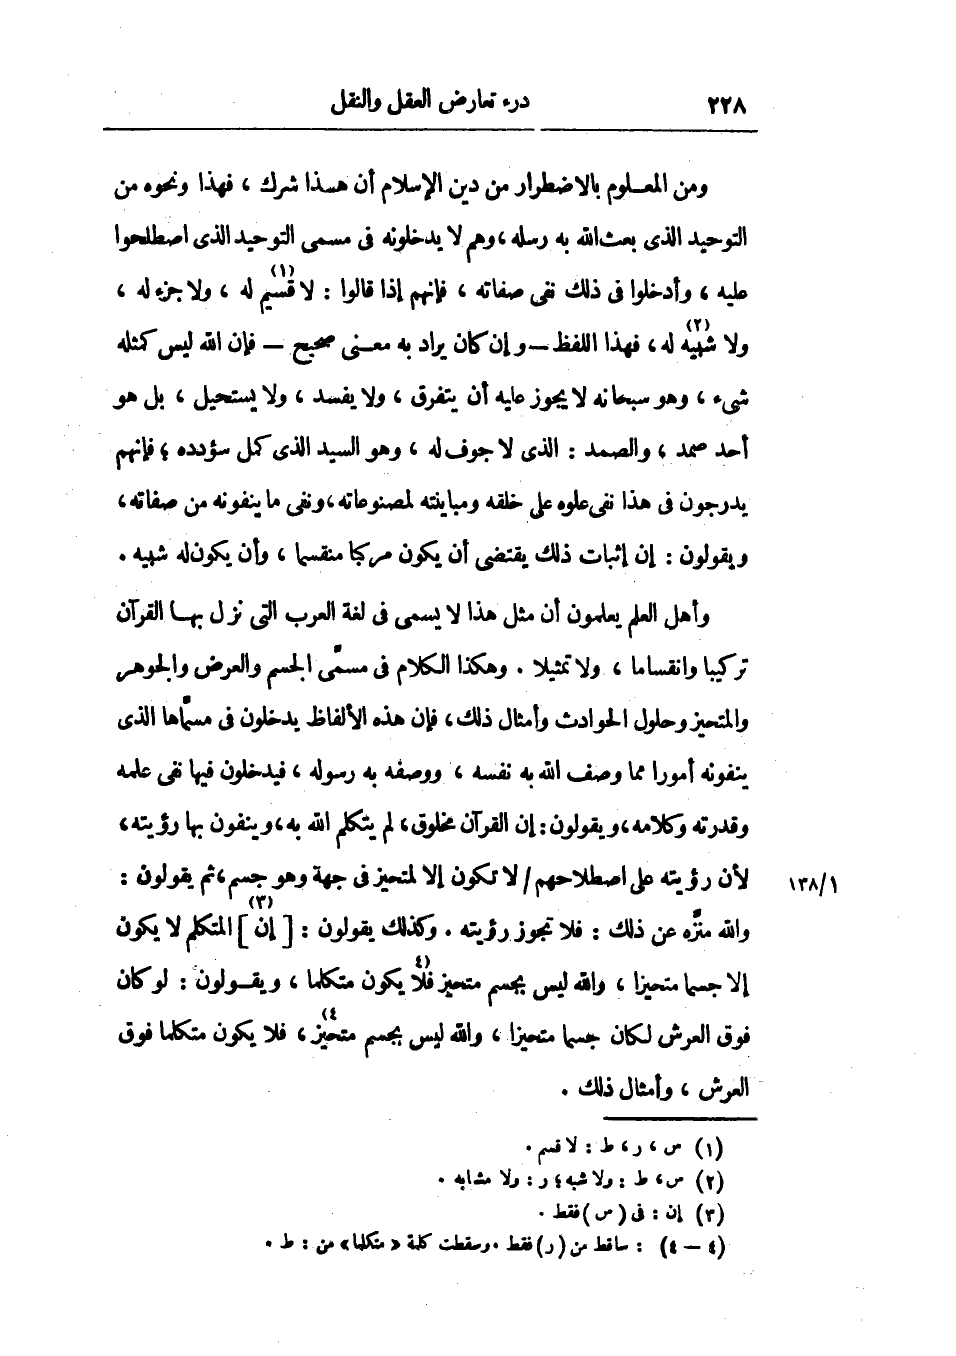 ٢٢٨ درء تعارض العقل والنقل
ومن المعلوم بالاضطرار من دين الإسلام أن هذا شرك ، فهذا ونحوه من
التوحيد الذى بعث الله به رسله ، وهم لا يدخلونه فى مسمى التوحيد الذى اصطلحوا
عليه ، وأدخلوا فى ذلك نفى صفاته ، فإنهم إذا قالوا : لا قسيم (١) له ، ولا جزء له ،
ولا شبيه (٢) له ، فهذا اللفظ — وإن كان يراد به معنى صحيح — فإن الله ليس كمثله
شىء ، وهو سبحانه لا يجوز عليه أن يتفرق ، ولا يفسد ، ولا يستحيل ، بل هو
أحد صمد ، والصمد : الذى لا جوف له ، وهو السيد الذى كمل سؤدده ؛ فإنهم
يدرجون فى هذا نفى علوه على خلقه ومباينته لمصنوعاته ، ونفى ما ينفونه من صفاته ،
ويقولون : إن إثبات ذلك يقتضى أن يكون مركبا منقسما ، وأن يكون له شبيه .
وأهل العلم يعلمون أن مثل هذا لا يسمى فى لغة العرب التى نزل بها القرآن
تركيبا وانقساما ، ولا تمثيلا . وهكذا الكلام فى مسمَّى الجسم والعرض والجوهر
والمتحيز وحلول الحوادث وأمثال ذلك ، فإن هذه الألفاظ يدخلون فى مسمَّاها الذى
ينفونه أمورا مما وصف الله به نفسه ، ووصفه به رسوله ، فيدخلون فيها نفى علمه
وقدرته وكلامه ، ويقولون : إن القرآن مخلوق ، لم يتكلم الله به ، وينفون بها رؤيته ،
لأن رؤيته على اصطلاحهم / لا تكون إلا لمتحيز فى جهة وهو جسم ، ثم يقولون : ١٣٨/١
والله منزَّه عن ذلك : فلا تجوز رؤيته . وكذلك يقولون : [ إن ] (٣) المتكلم لا يكون
إلا جسما متحيزا ، والله ليس بجسم متحيز (٤ فلا يكون متكلما ، ويقولون : لو كان
فوق العرش لكان جسما متحيزا ، والله ليس بجسم متحيز ٤) ، فلا يكون متكلما فوق
العرش ، وأمثال ذلك .
(١) س ، ر ، ط : لا قسم .
(٢) س ، ط : ولا شبه ؛ ر : ولا مشابه .
(٣) إن : فى (س) فقط .
(٤ — ٤) : ساقط من (ر) فقط . وسقطت كلمة «متكلما» من : ط .